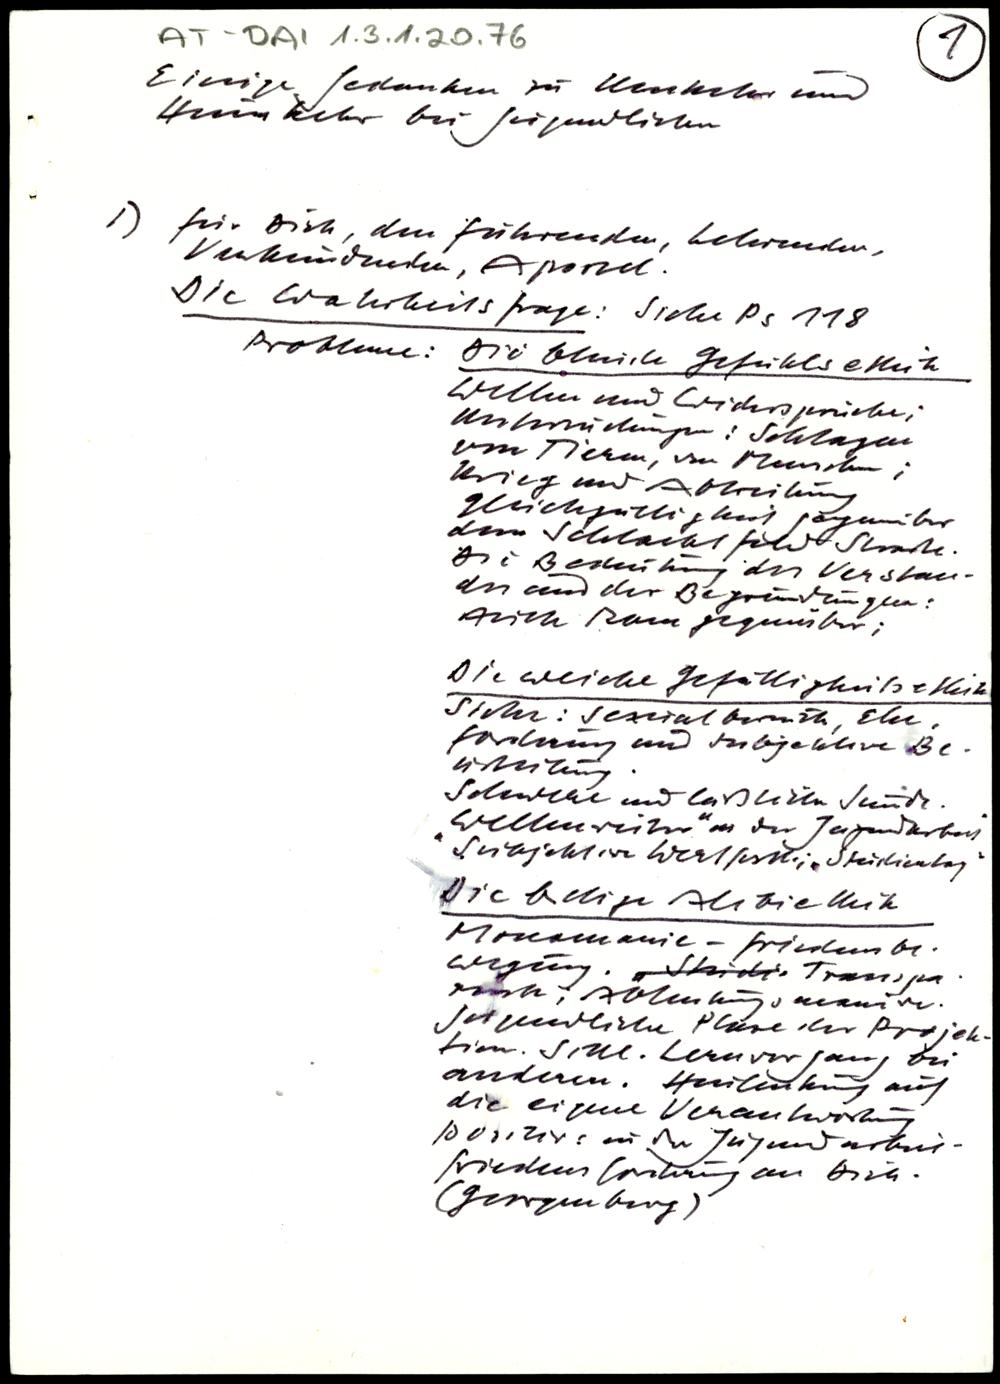 AT-DAI 1.3.1.20.76
1
Einige Gedanken zu Umkehr und
Heimkehr bei Jugendlichen
1) für Dich, den führenden, lehrenden,
Verkündenden, Apostel.
Die Wahrheitsfrage: Siehe Ps 118
Probleme: Die blinde Gefühlsethik
Wellen und Widersprüche;
Untersuchungen: Schlagen
von Tieren, von Menschen;
Krieg und Abtreibung
Gleichgültigkeit gegenüber
dem Schlachtfeld Strasse.
Die Bedeutung des Verstan-
des und der Begründungen:
Auch Rom gegenüber;
Die weiche Gefälligkeitsethik
Siehe: Sexualbereich, Ehe,
forderung und subjektive Be-
urteilung.
Schwere und lässliche Sünde.
"Wellenreiter" in der Jugendarbeit
"Subjektive Studientag"
Die Alibiethik
Monomanie - Friedensbe-
wegung. Transpa-
rente; Ablenkungsmanöver.
Jugendliche Phase der Projek-
tion. Sittl. Lernvorgang bei
anderen. Hinlenkung auf
die eigene Verantwortung
positiv: in der Jugendarbeit
Friedensforderung an Dich.
(Georgenberg)